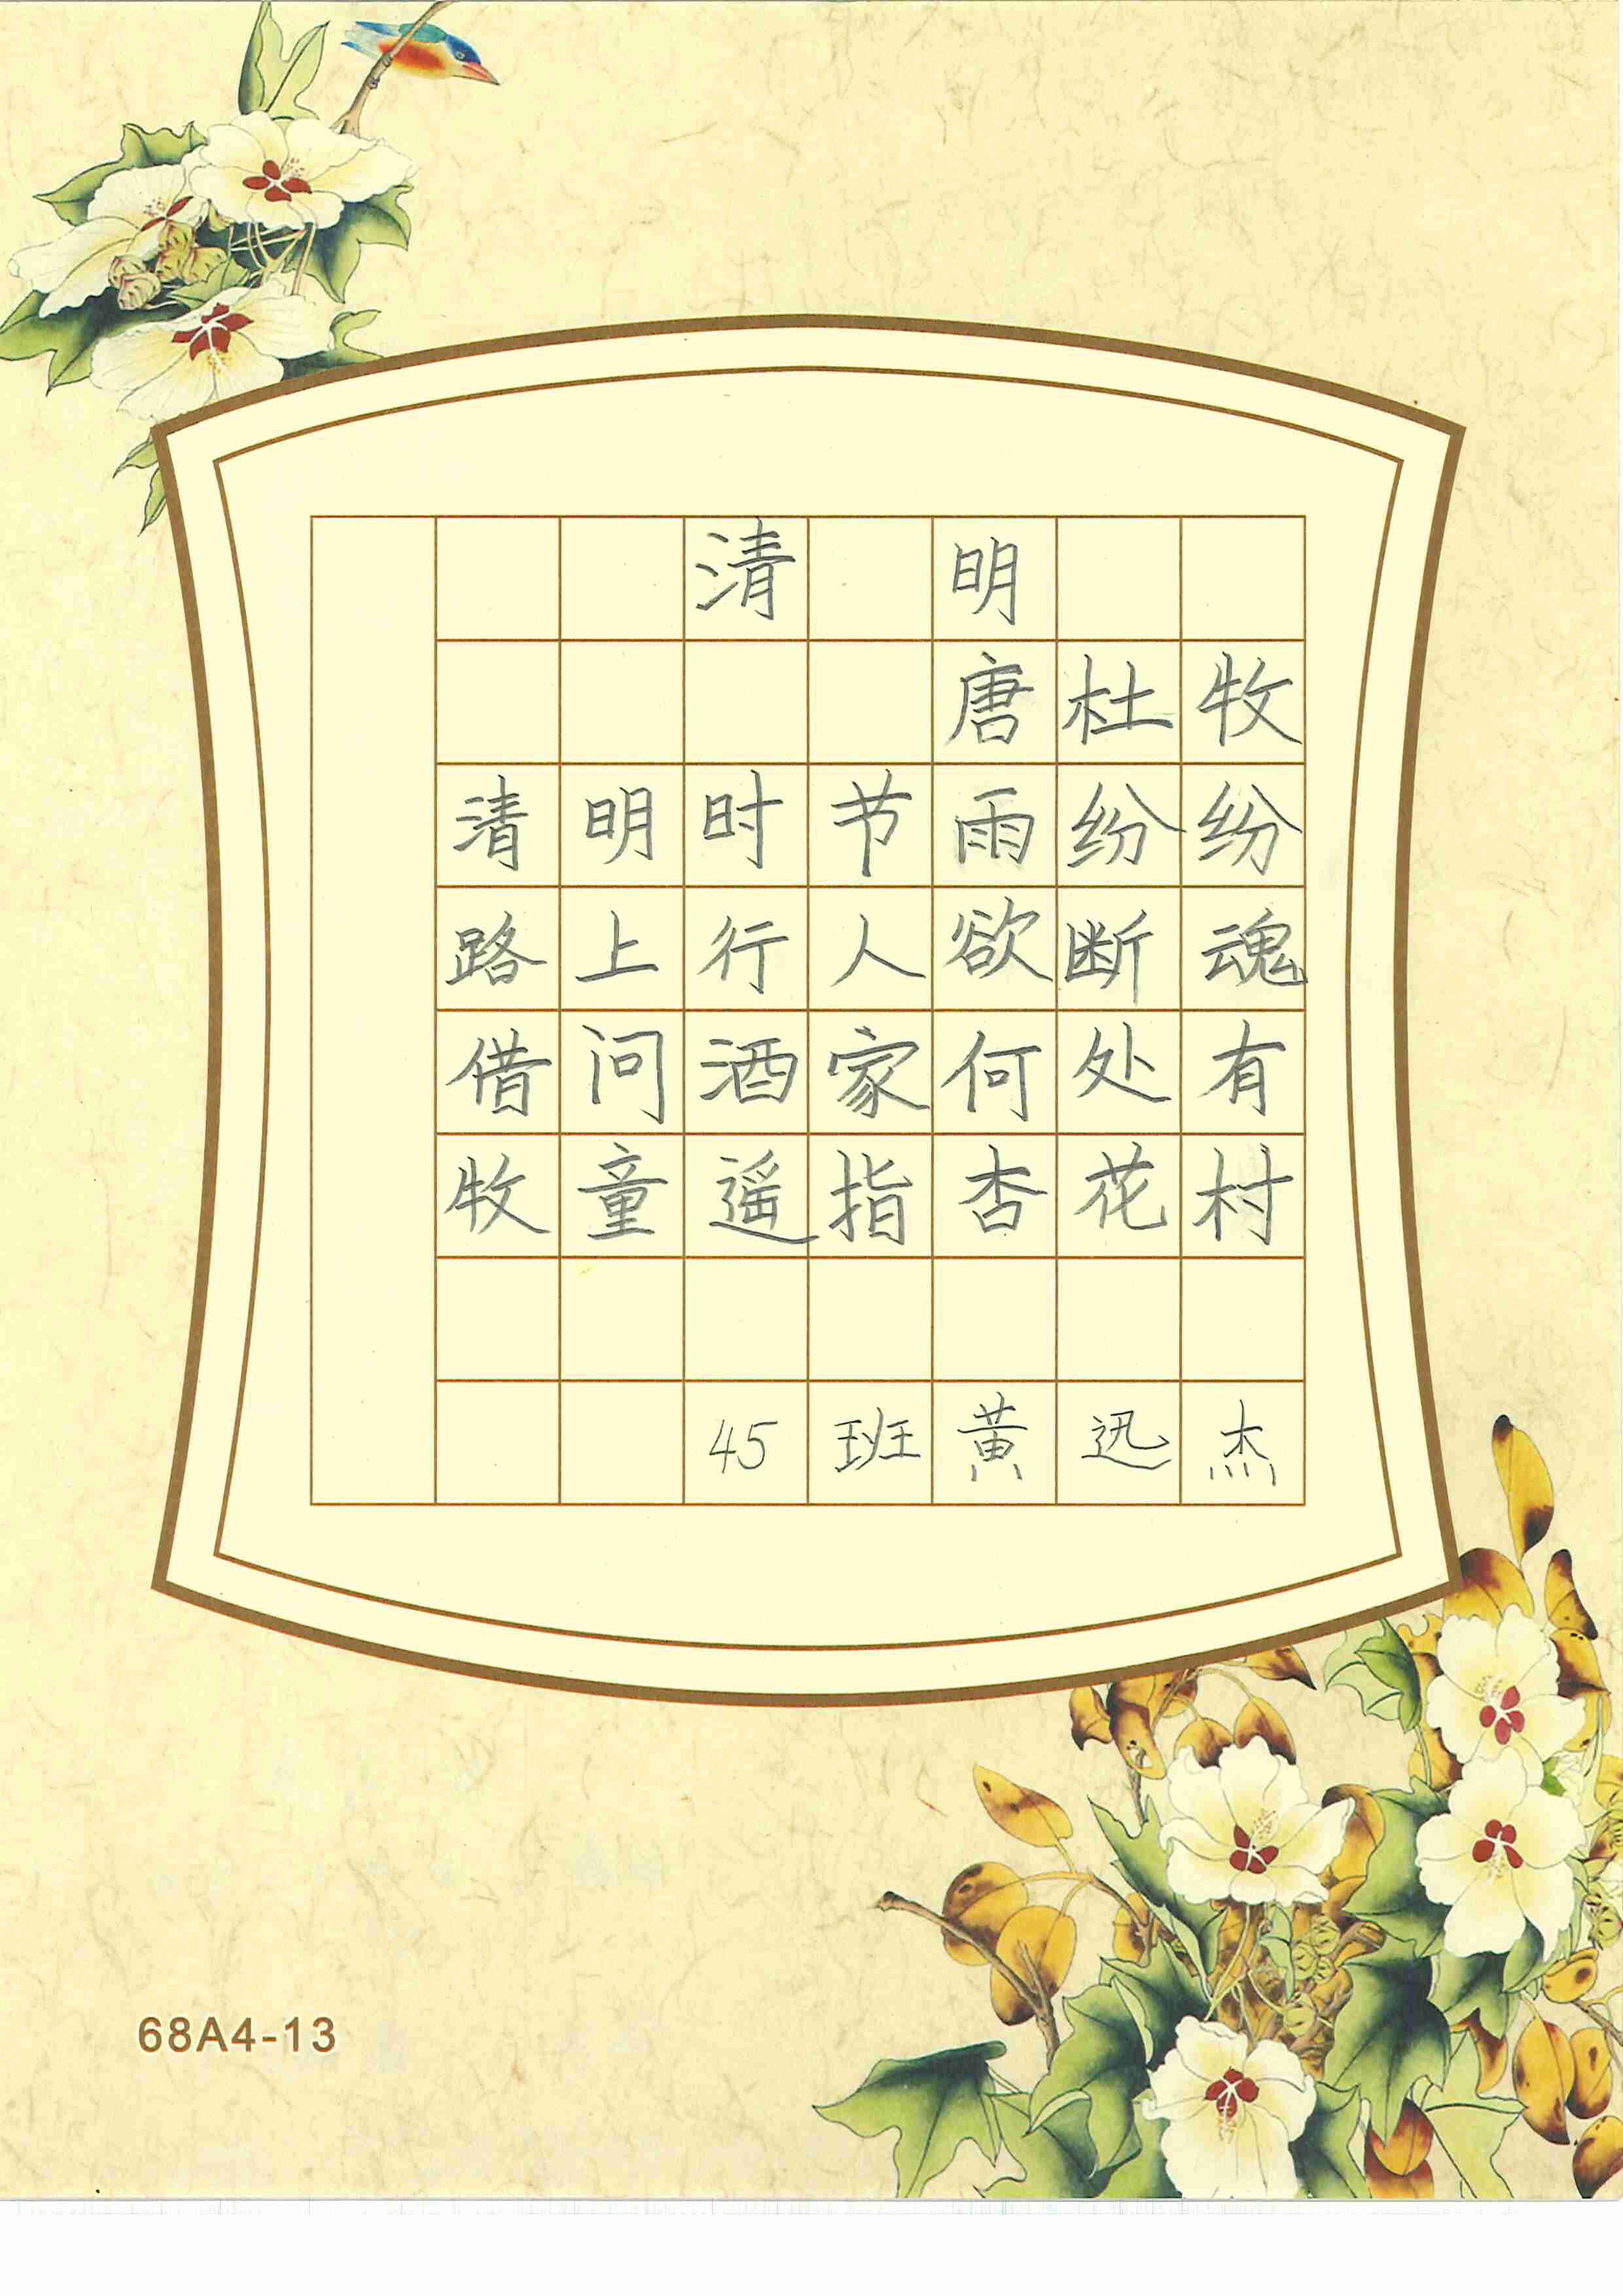 清明
唐杜牧
清明时节雨纷纷
路上行人欲断魂
借问酒家何处有
牧童遥指杏花村
45班黄迅杰
68A4-13